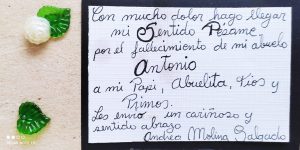 Con mucho dolor hago llegar
mi Sentido Pésame,
por el fallecimiento de mi abuelo
Antonio
a mi Papi, Abuelita, Tíos y
Primos.
Les envío un cariñoso y
sentido abrazo
Andrea Molina Salgado